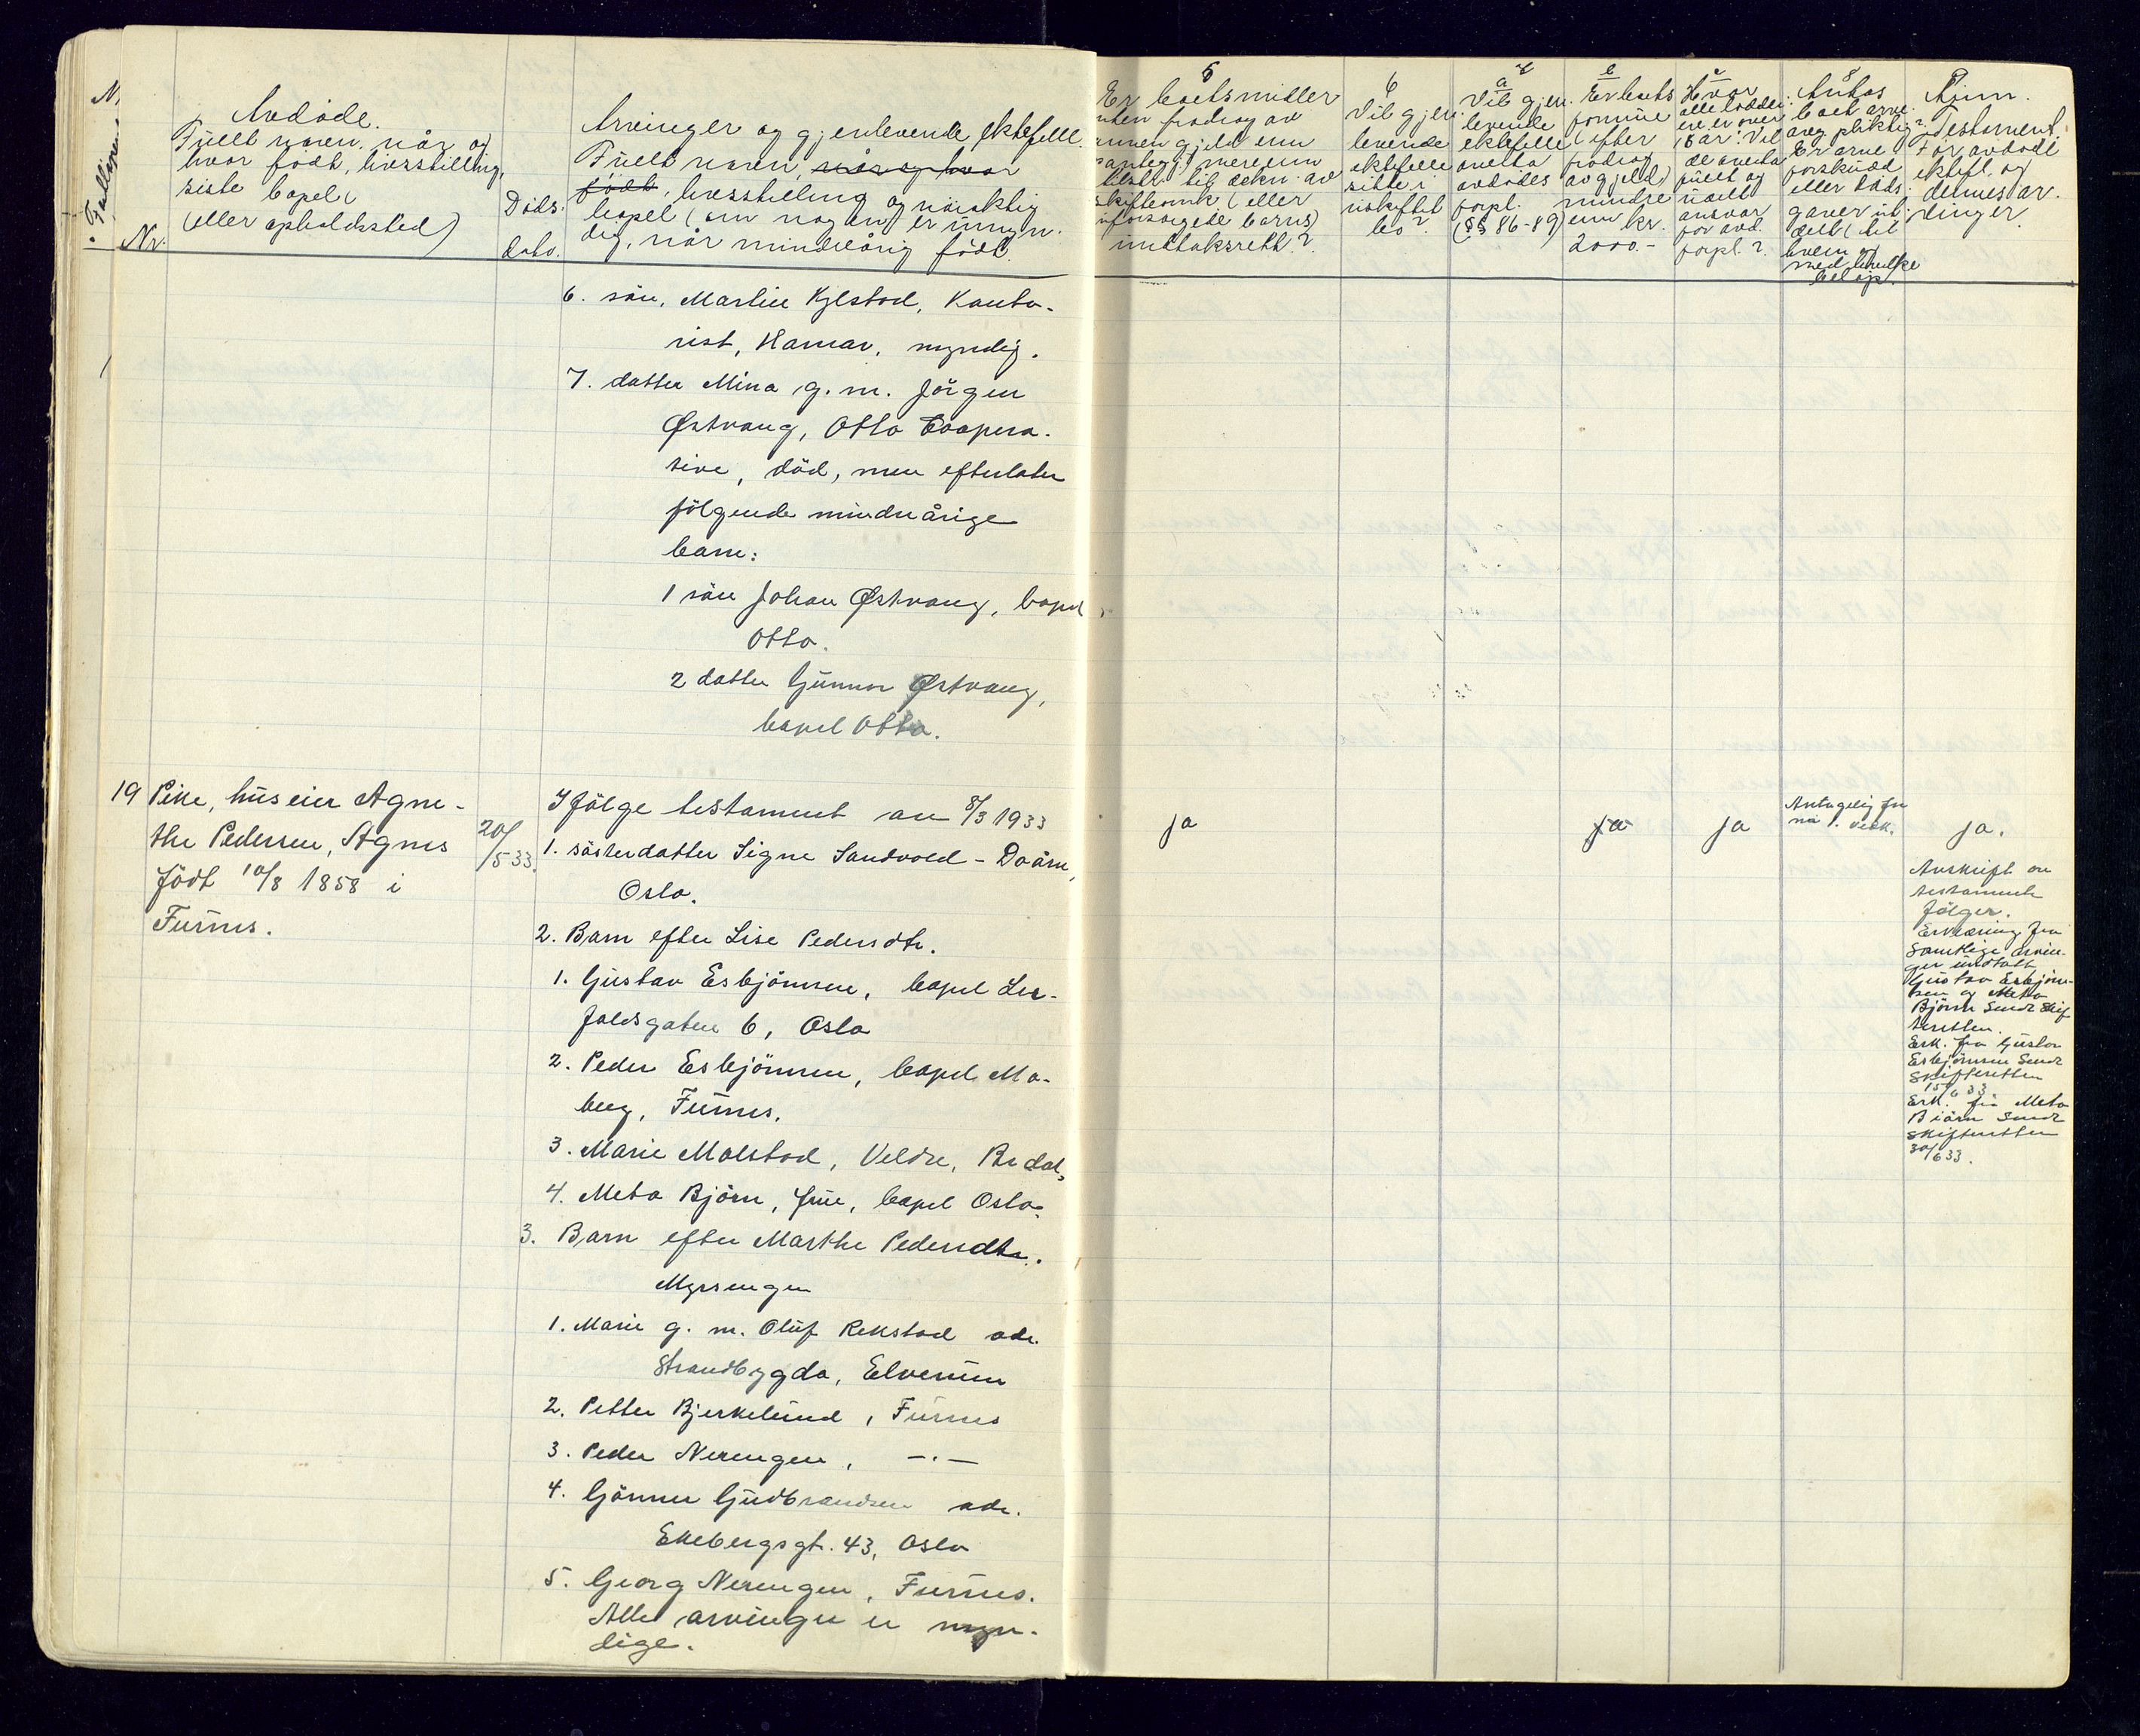 Nr.
Avdøde.
Fullt navn, når og
hvor født, livsstilling,
siste bopel
(eller opholdssted)
Døds-
dato.
Arvinger og gjenlevende ektefelle.
Fullt navn, når og hvor
født, livsstilling og nøiaktig
bopel (om nogen er umyn-
dig, når mindreårig født.
5
Er boets midler
uten fradrag av
annen gjeld enn
mere enn
til dekn. av
skifteomk. (eller
uforsørgede barns
uttaksrett?
6
Vil gjen-
levende
ektefelle
sitte i
uskiftet
bo?
a
Vil gjen-
levende
ektefelle
overta
avdødes
forpl.
(§§ 86-89)
Er boets
formue
(efter
fradrag
av gjeld)
mindre
enn kr.
2000.-
Hvor
alle loddei-
ere er over
18 år: Vil
de overta
fullt og
helt
ansvar
for avd.
forpl.?
8
Antas
boet arve-
avg. pliktig?
Er arve-
forskudd
eller døds-
gaver ut-
delt (til
hvem og
med hvilke
beløp).
9
Anm.
Testament.
For avdøde
ektef. og
dennes ar-
vinger.
6. sön, Martin Kylstad, Konto-
rist, Hamar, myndig.
7. datter Mina g. m. Jörgen
Østvang, Otta Coopera-
tive, död, men efterlater
fölgende mindreårige
barn:
1 sön Johan Østvang, bopel
Otta.
2 datter Gunnor Østvang,
bopel Otta.
19 Pike, huseier Agne-
the Pedersen, Agnes
Född 10/8 1858 i
Furnes.
20/5 33.
Ifölge testament av 8/3 1933
1. sösterdatter Signe Sandvold - Doärn,
Oslo.
2. Barn efter Lise Pedersdtr.
1. Gustav Esbjörnsen, bopel Lee-
foldsgaten 6, Oslo
2. Peder Esbjörnsen, bopel Mo-
berg, Furnes.
3. Marie Malstad, Veldre, Brdal,
4. Meta Björn, frue, bopel Oslo.
3. Barn efter Marthe Pedersdtr.
Myrsengen
1. Marie g. m. Oluf Rekstad adr.
Strandbygda, Elverum
2. Petter Bjerkelund, Furnes
3. Peder Nerengen, —·—
4. Gönner Gudbrandsen adr.
Ekebergsgt. 43, Oslo
5. Georg Nerengen, Furnes.
Alle arvinger er myn-
dige.
ja
ja
ja
Antagelig
ja.
Avskrift av
testamente
fölger.
Erklæring fra
samtlige arvin-
ger undtatt
Gustav Esbjörn-
sen og Meta
Björn sendt skif-
teretten.
Erk. fra Gustav
Esbjörnsen sendt
skifteretten
15/6 33
Erk. fra Meta
Björn sendt
skifteretten
30/6 33.